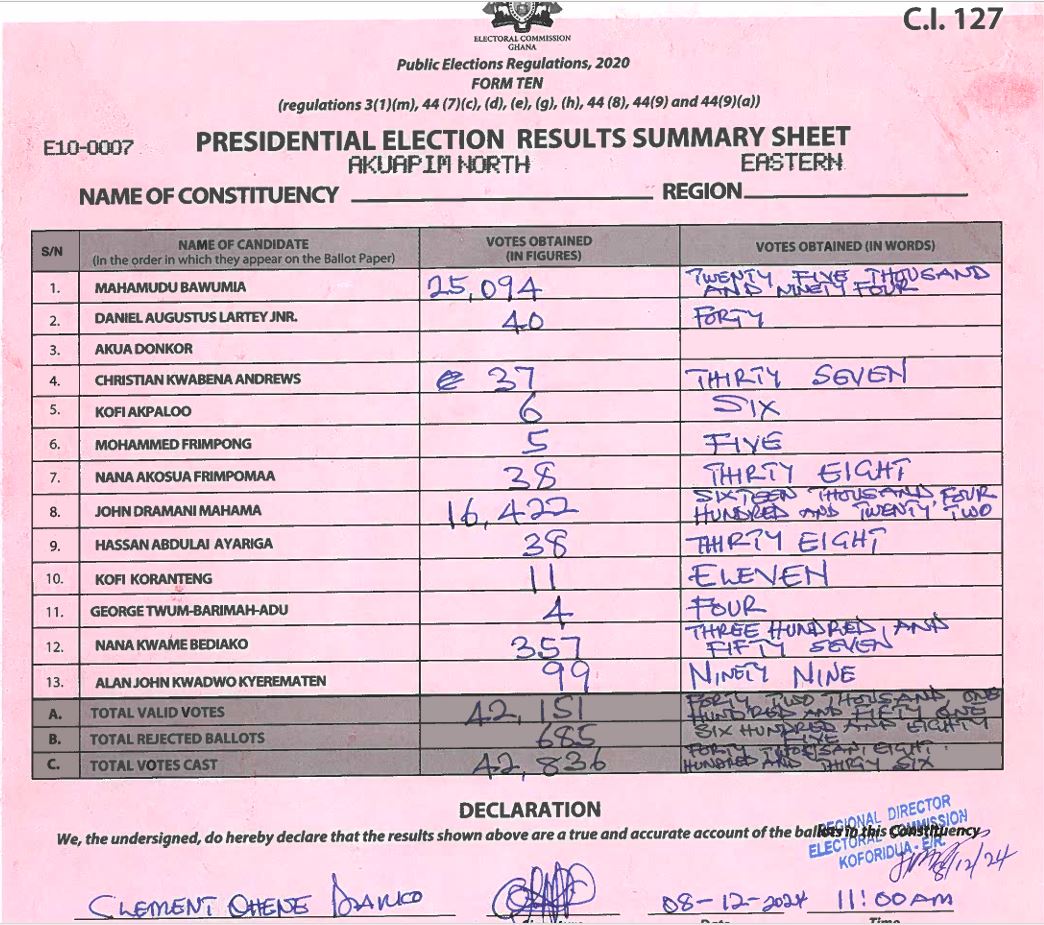 ELECTORAL COMMISSION
GHANA
C.I. 127
Public Elections Regulations, 2020
FORM TEN
(regulations 3(1)(m), 44 (7)(c), (d), (e), (g), (h), 44 (8), 44(9) and 44(9)(a))
E10-0007
PRESIDENTIAL ELECTION RESULTS SUMMARY SHEET
AKUAPIM NORTH EASTERN
NAME OF CONSTITUENCY REGION
S/N NAME OF CANDIDATE (In the order in which they appear on the Ballot Paper) VOTES OBTAINED (IN FIGURES) VOTES OBTAINED (IN WORDS)
1. MAHAMUDU BAWUMIA 25,094 TWENTY FIVE THOUSAND AND NINETY FOUR
2. DANIEL AUGUSTUS LARTEY JNR. 40 FORTY
3. AKUA DONKOR
4. CHRISTIAN KWABENA ANDREWS 37 THIRTY SEVEN
5. KOFI AKPALOO 6 SIX
6. MOHAMMED FRIMPONG 5 FIVE
7. NANA AKOSUA FRIMPOMAA 38 THIRTY EIGHT
8. JOHN DRAMANI MAHAMA 16,422 SIXTEEN THOUSAND, FOUR HUNDRED AND TWENTY TWO
9. HASSAN ABDULAI AYARIGA 38 THIRTY EIGHT
10. KOFI KORANTENG 11 ELEVEN
11. GEORGE TWUM-BARIMAH-ADU 4 FOUR
12. NANA KWAME BEDIAKO 357 THREE HUNDRED AND FIFTY SEVEN
13. ALAN JOHN KWADWO KYEREMATEN 99 NINETY NINE
A. TOTAL VALID VOTES 42,151 FORTY TWO THOUSAND ONE HUNDRED AND FIFTY ONE
B. TOTAL REJECTED BALLOTS 685 SIX HUNDRED AND EIGHTY FIVE
C. TOTAL VOTES CAST 42,836 FORTY EIGHT HUNDRED AND THIRTY SIX
DECLARATION
We, the undersigned, do hereby declare that the results shown above are a true and accurate account of the ballots in this Constituency
REGIONAL DIRECTOR
ELECTORAL COMMISSION
KOFORIDUA - E/R
8/12/24
CLEMENT OHENE DARKO 08-12-2024 11:00AM
Date Time